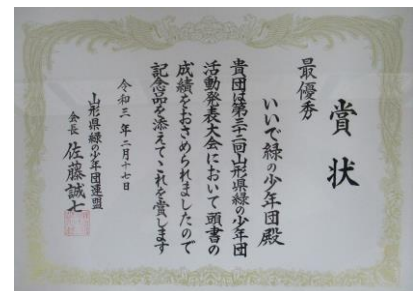 賞状
最優秀
いいで緑の少年団殿
貴団は第三十二回山形県緑の少年団
活動発表大会において頭書の
成績をおさめられましたので
記念品を添えてこれを賞します
令和三年二月十七日
山形県緑の少年団連盟
会長 佐藤誠七